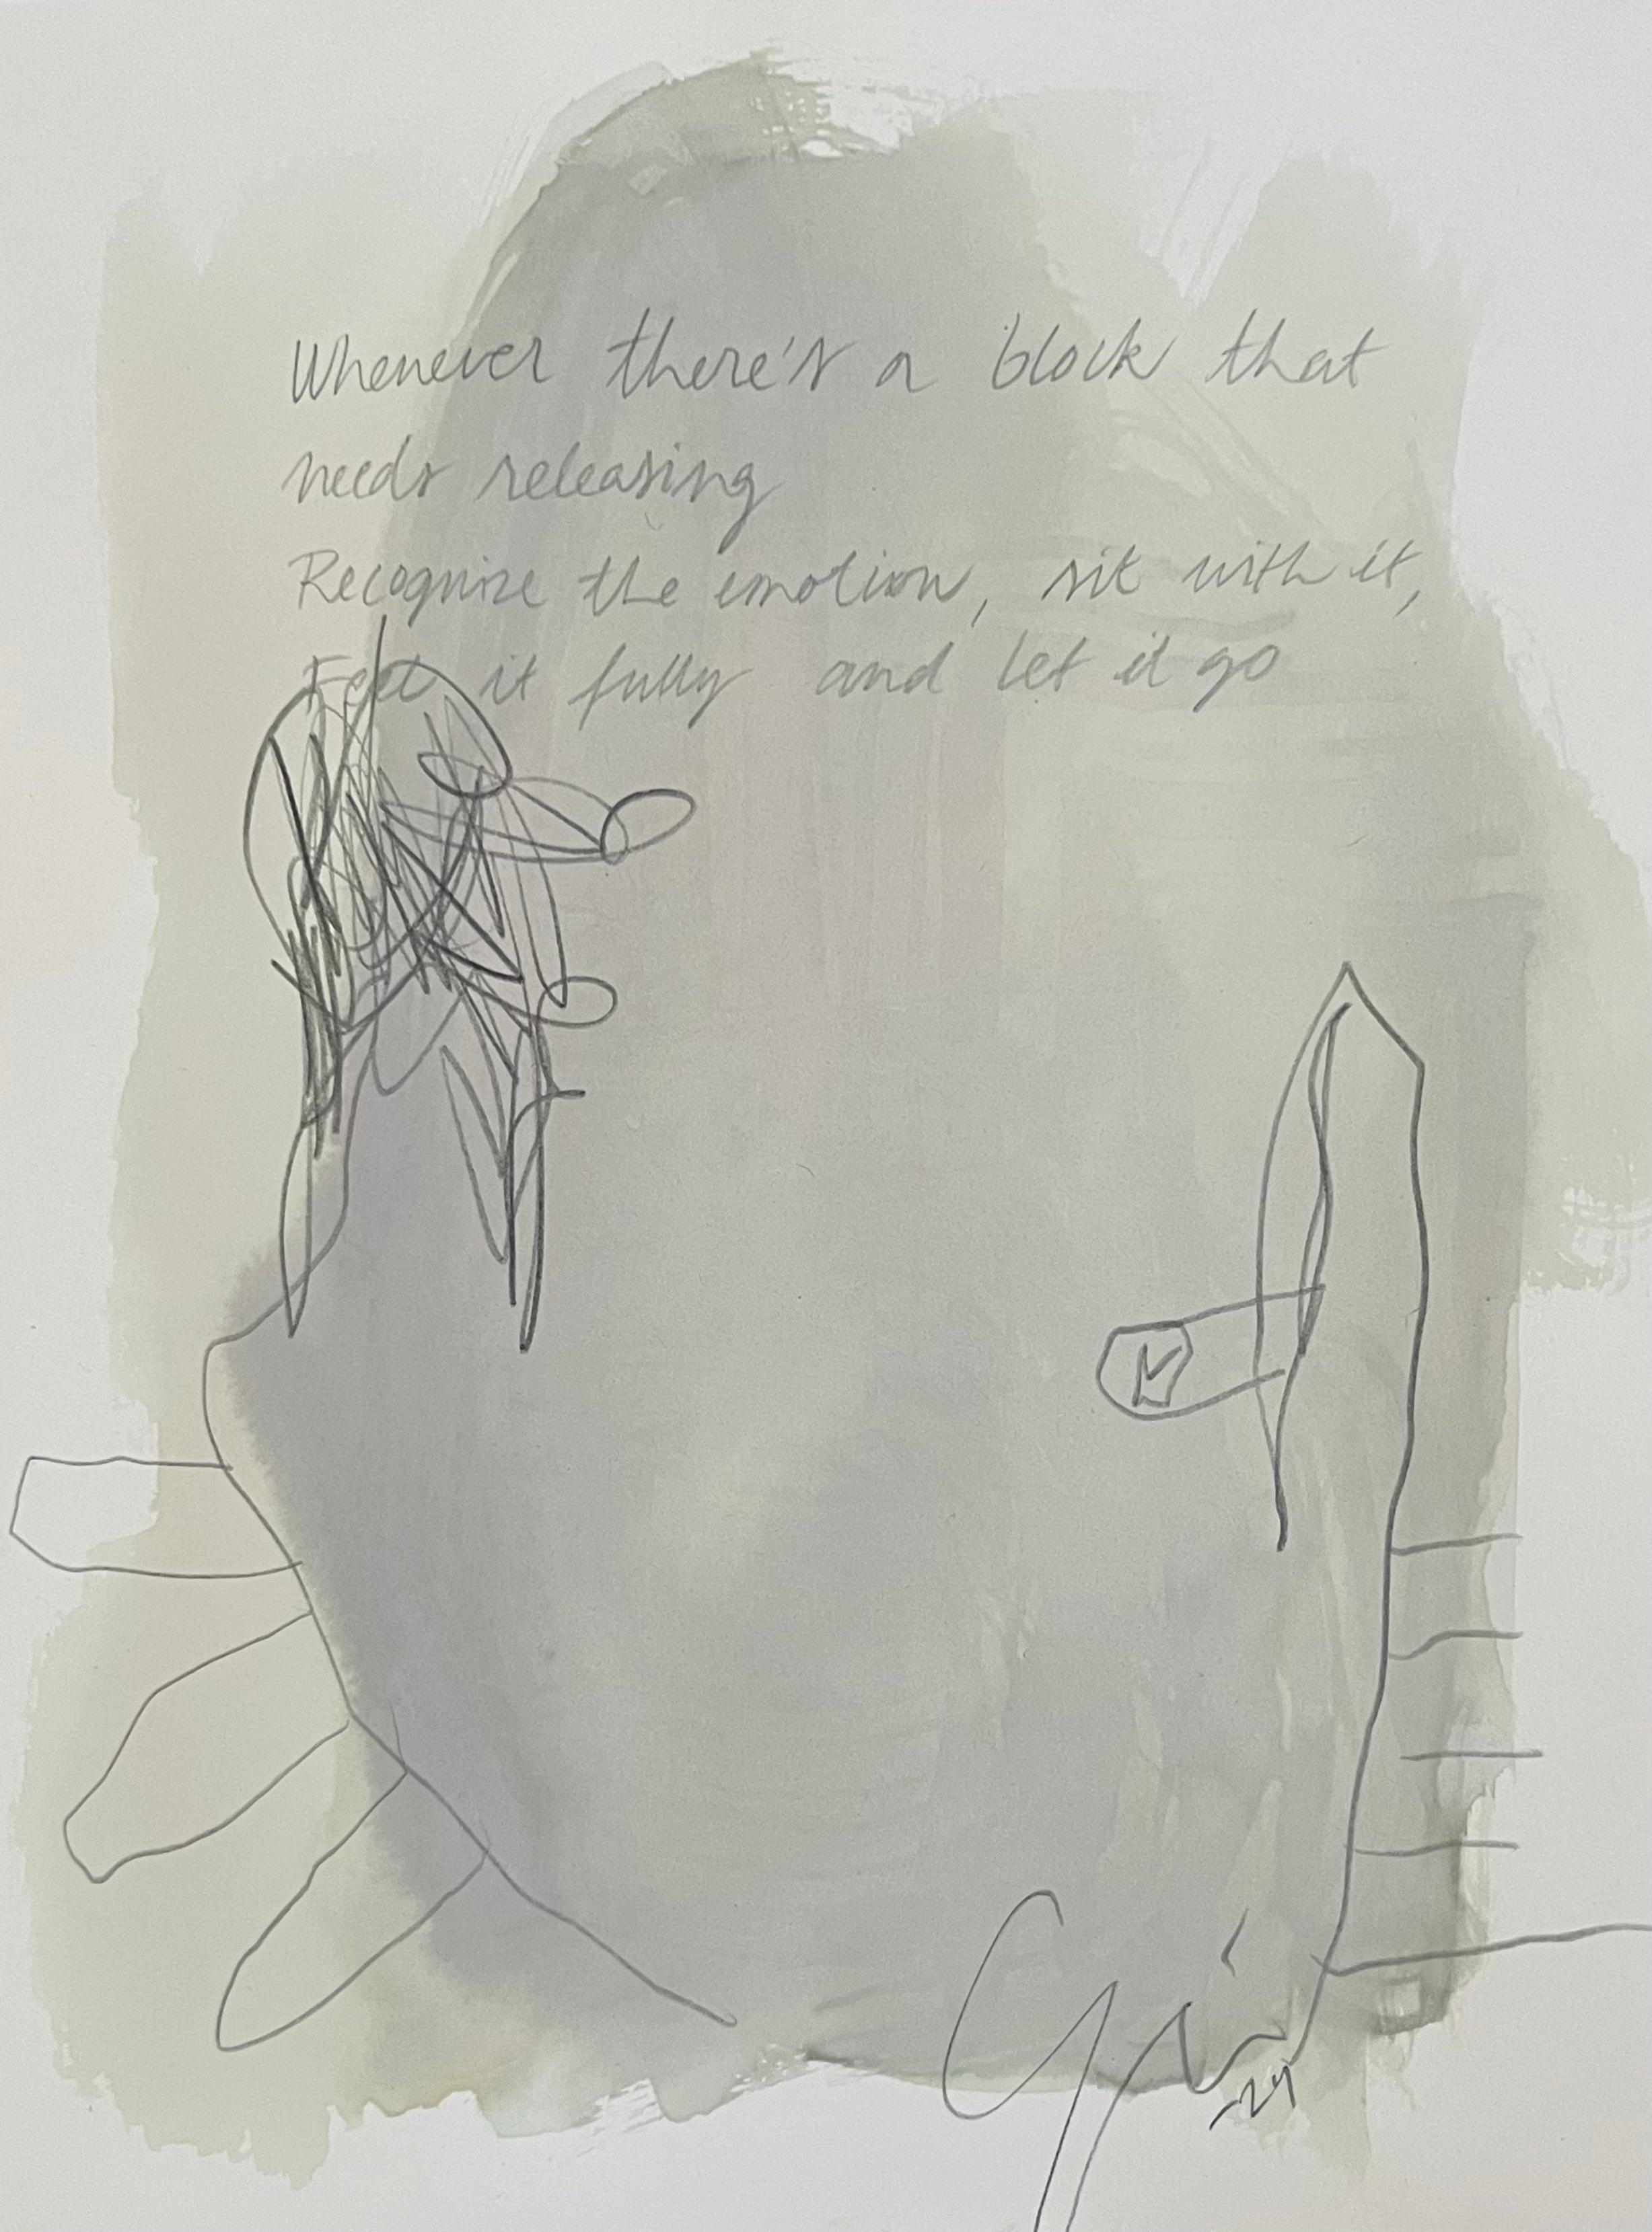 Whenever there's a block that
needs releasing
Recognize the emotion, sit with it,
Feel it fully and let it go
-24